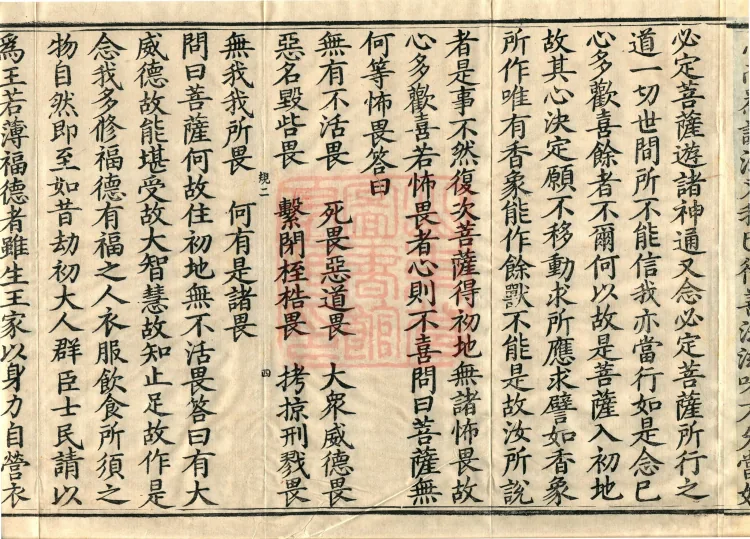 必定菩薩遊諸神通又念必定菩薩所行之
道一切世間所不能信我亦當行如是念已
心多歡喜餘者不爾何以故是菩薩入初地
故其心決定願不移動求所應求譬如香象
所作唯有香象能作餘獸不能是故汝所說
者是事不然復次菩薩得初地無諸怖畏故
心多歡喜若怖畏者心則不喜問曰菩薩無
何等怖畏答曰
無有不活畏 死畏惡道畏 大衆威德畏
惡名毀呰畏 繫閉桎梏畏 拷掠刑戮畏
規二 四
無我我所畏 何有是諸畏
問曰菩薩何故住初地無不活畏答曰有大
威德故能堪受故大智慧故知止足故作是
念我多修福德有福之人衣服飲食所須之
物自然即至如昔劫初大人群臣士民請以
為王若薄福德者雖生王家以身力自營衣